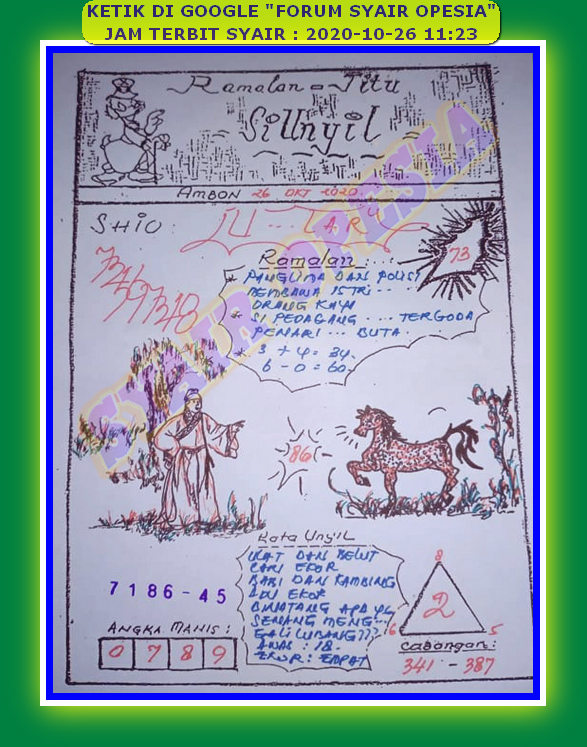 KETIK DI GOOGLE "FORUM SYAIR OPESIA"
JAM TERBIT SYAIR : 2020-10-26 11:23
Ramalan = Jitu
Si Unyil
AMBON 26 OKT 2020
SHIO:
73
Ramalan:...
* PANGLIMA DAN POLISI
MEMBAWA ISTRI ...
ORANG KAYA
* SI PEDAGANG .... TERGODA
PENARI ... BUTA.
* 3 + 4 = 34.
6 - 0 = 60.
SYAIR OPESIA
86
Kata Unyil
ULAT DAN BELUT
CARI EKOR
BABI DAN KAMBING
ADU EKOR
BINATANG APA YG
SENANG MENG...
GALI LUBANG???
AWAS : 18.
EKOR : EMPAT
7186-45
ANGKA MANIS:
0 7 8 9
8
2
6 5
Cabangan:
341 - 387